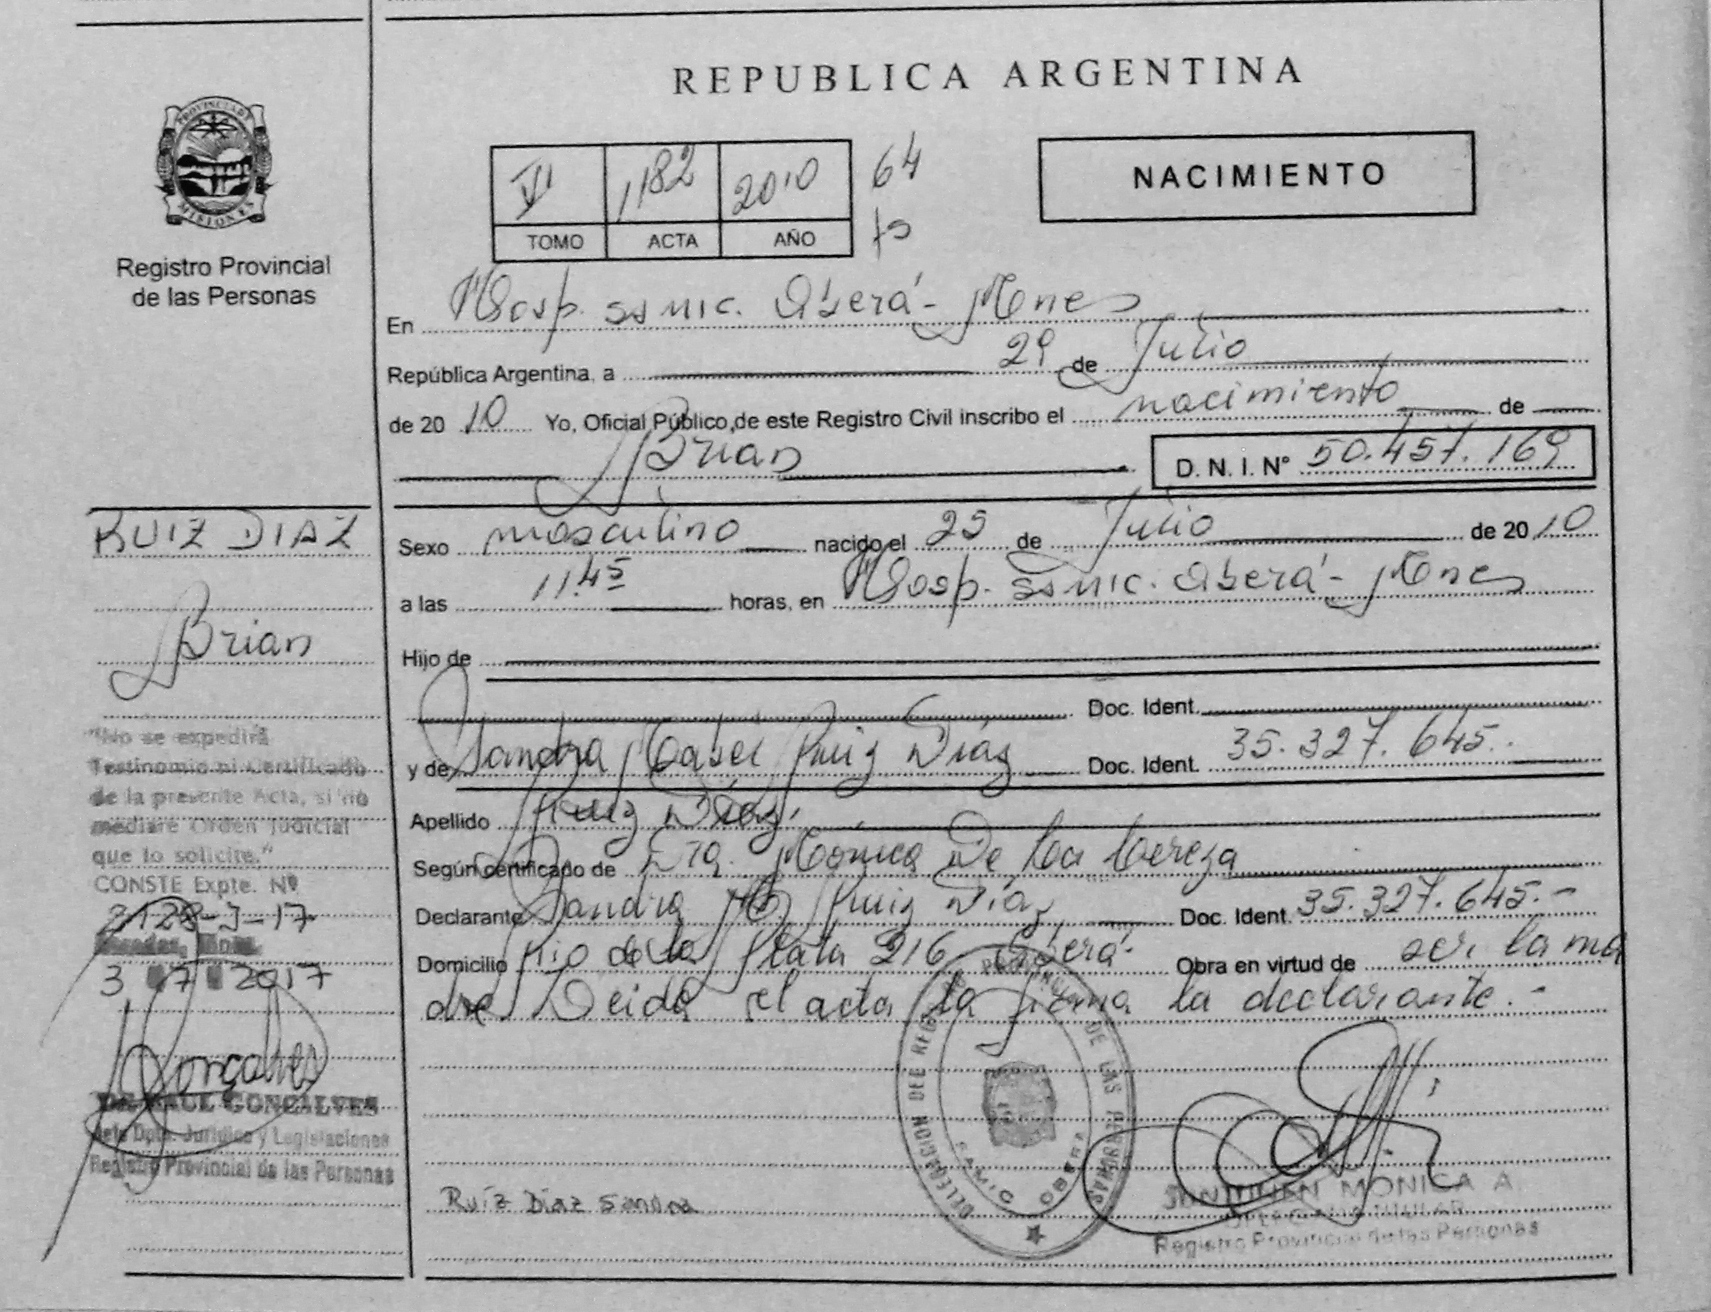 REPUBLICA ARGENTINA
PROVINCIA DE
MISIONES
Registro Provincial
de las Personas
VI 1182 2010 64
TOMO ACTA AÑO
NACIMIENTO
En Hosp. SAMIC. Oberá - Mnes
República Argentina, a 29 de Julio
de 2010 Yo, Oficial Público, de este Registro Civil inscribo el nacimiento de
Brian D. N. I. N° 50.457.169
RUIZ DIAZ
Brian
Sexo masculino nacido el 25 de Julio de 2010
a las 11.45 horas, en Hosp. SAMIC. Oberá - Mnes
Hijo de
Doc. Ident.
y de Sandra Mabel Ruiz Díaz Doc. Ident. 35.327.645.
Apellido Ruiz Díaz.
Según certificado de Dra. Mónica De La
Declarante Sandra M. Ruiz Díaz Doc. Ident. 35.327.645.-
Domicilio Río de la Plata 216 Oberá- Obra en virtud de ser la ma
dre Leida el acta la firma la declarante.-
"No se expedirá
Testimonio ni Certificado
de la presente Acta, si no
mediare Orden Judicial
que lo solicite."
CONSTE Expte. Nº
2128-J-17
Posadas, Mnes.
3 7 2017
Gonçalves
RAUL GONCALVES
Jefe Dpto. Jurídico y Legislaciones
Registro Provincial de las Personas
Ruíz Diaz Sandra
DELEGACION DEL REGISTRO PROVINCIAL DE LAS PERSONAS
SAMIC OBERA
MONICA A.
OFICIAL TITULAR
Registro Provincial de las Personas